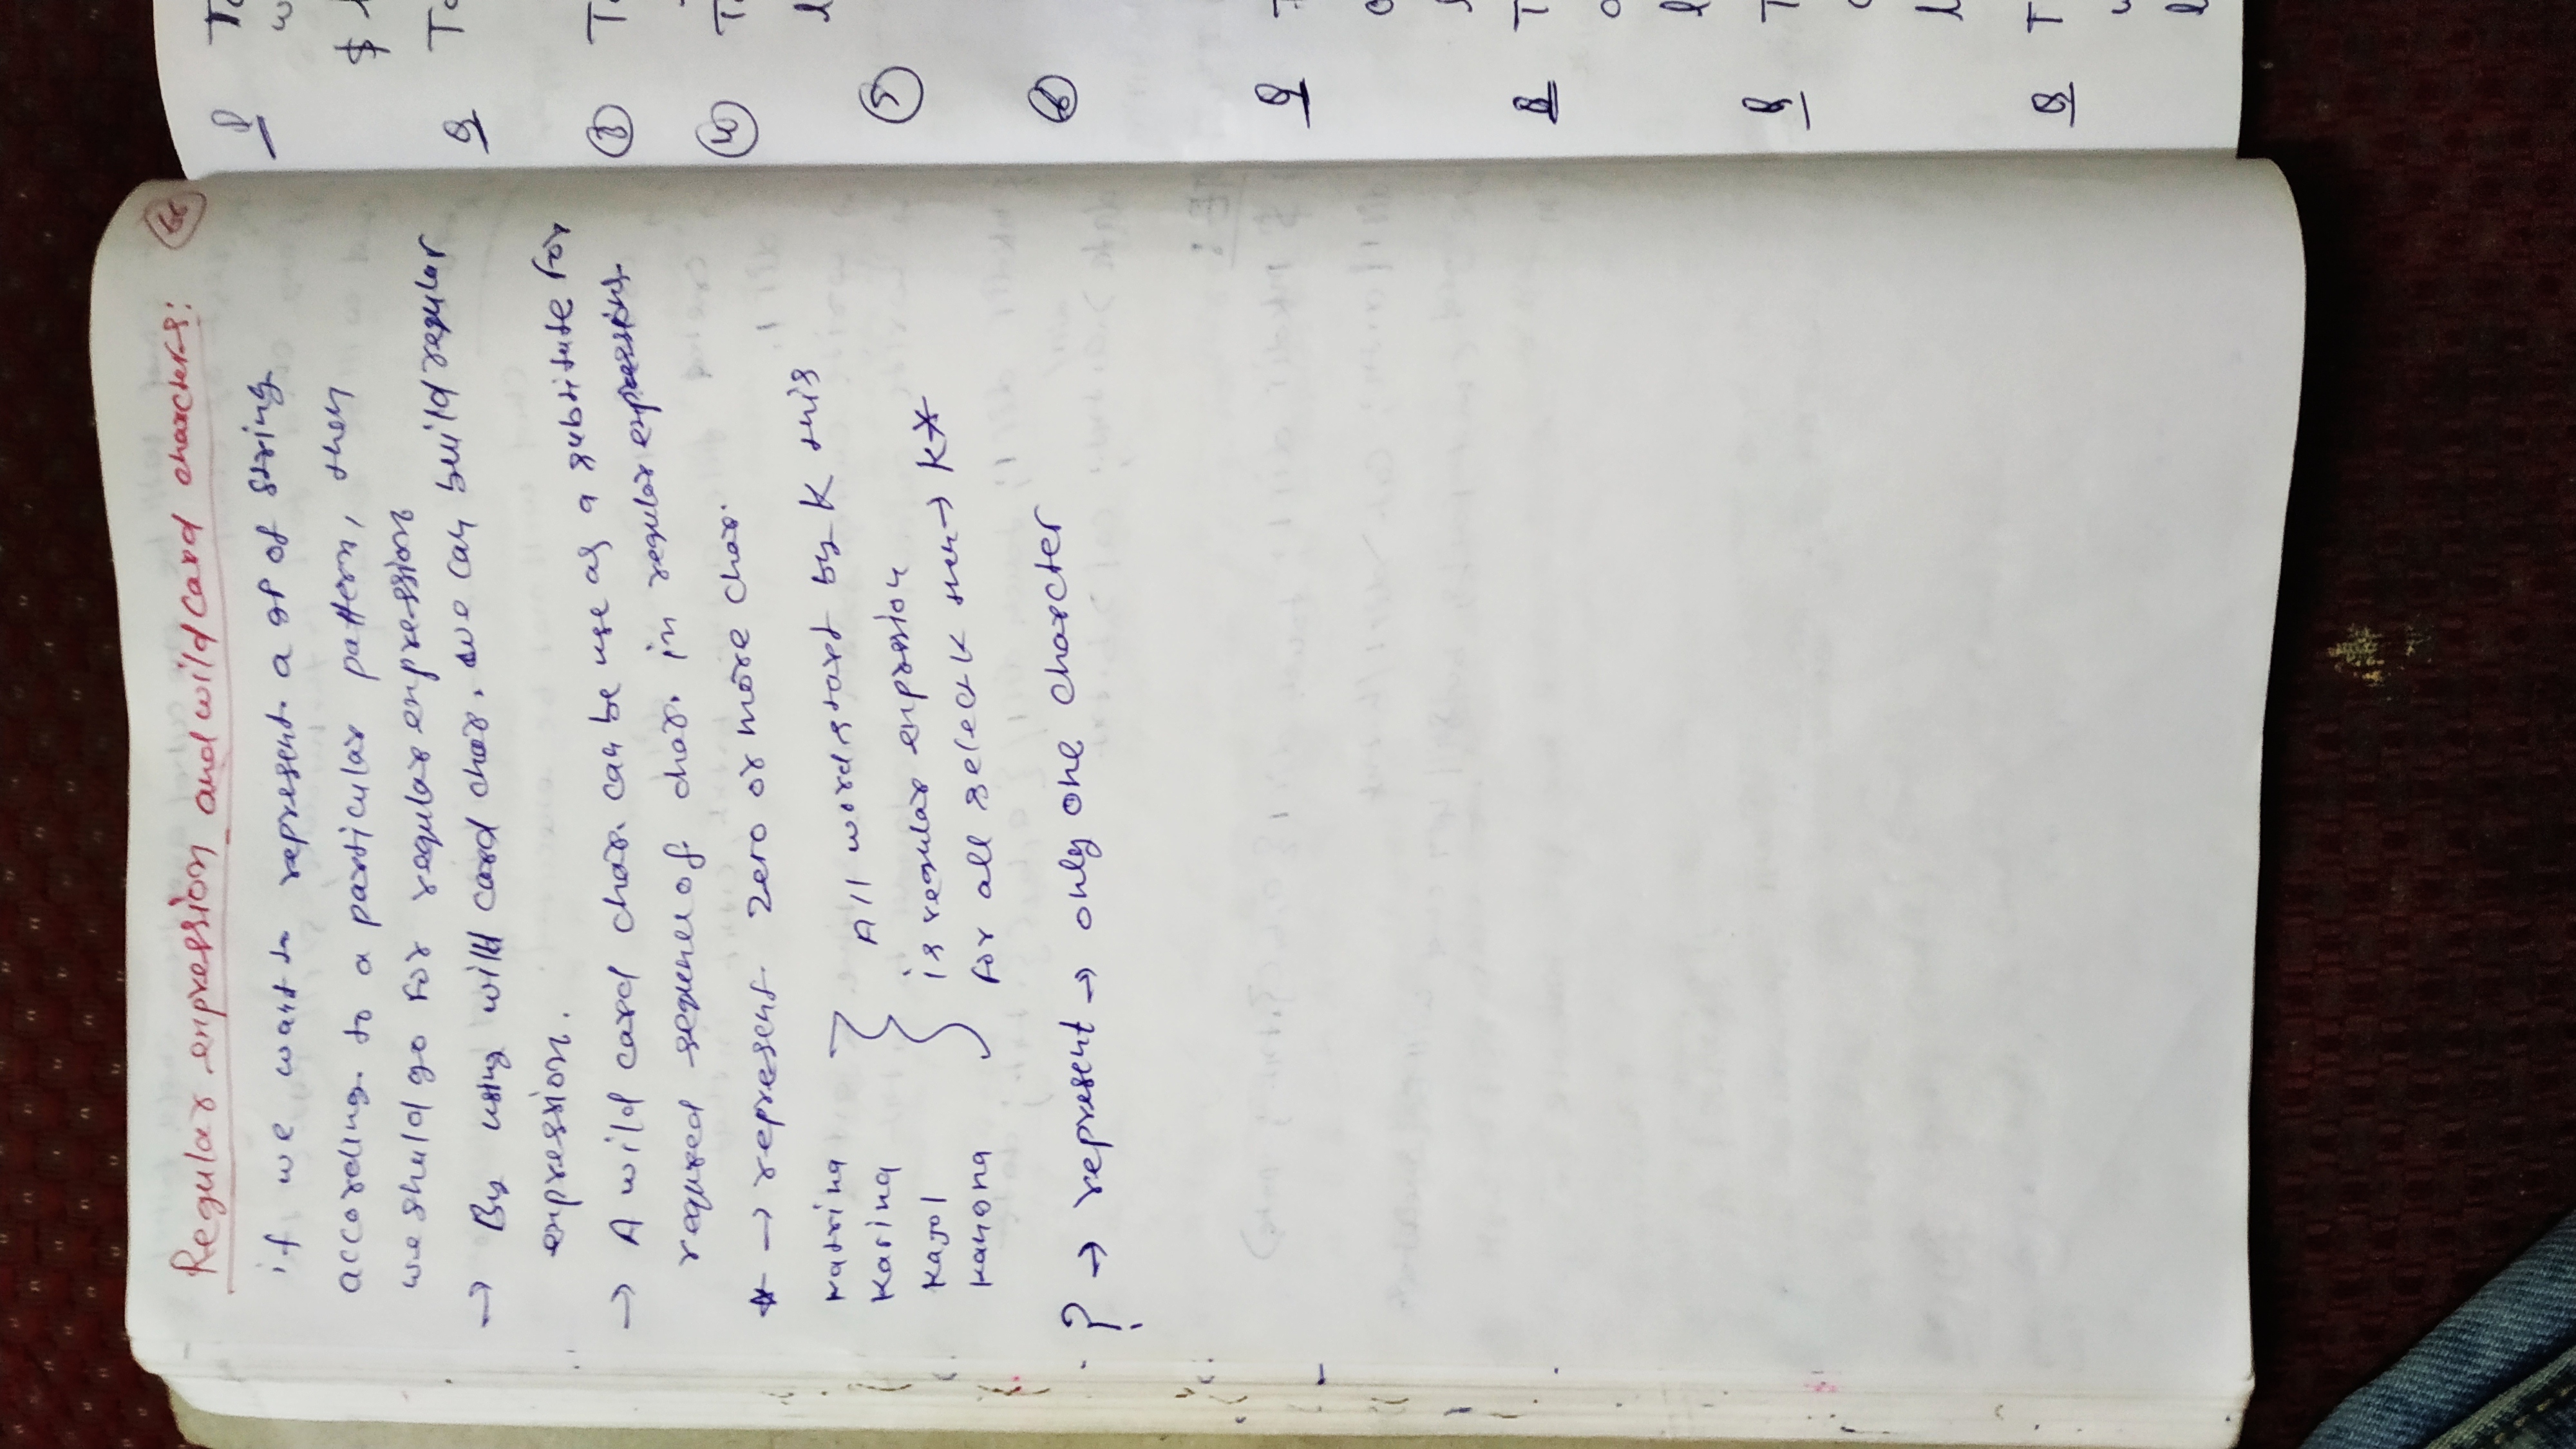 Regular expression and wild card characters:
if we want to represent a gp of string
according to a particular pattern, then
we shuld go for regular expression
→ By using will card char. we can build regular
expression.
→ A wild card char. can be use as a substitute for
required sequence of char. in regular expression
* → represent zero or more char.
katrina
Karina
Kajol
kanona
All word start by K this
is regular expression
for all select k then → K*
? → represent → only one charcter
Q
$
Q
③
④
⑤
⑥
Q
Q
Q
Q